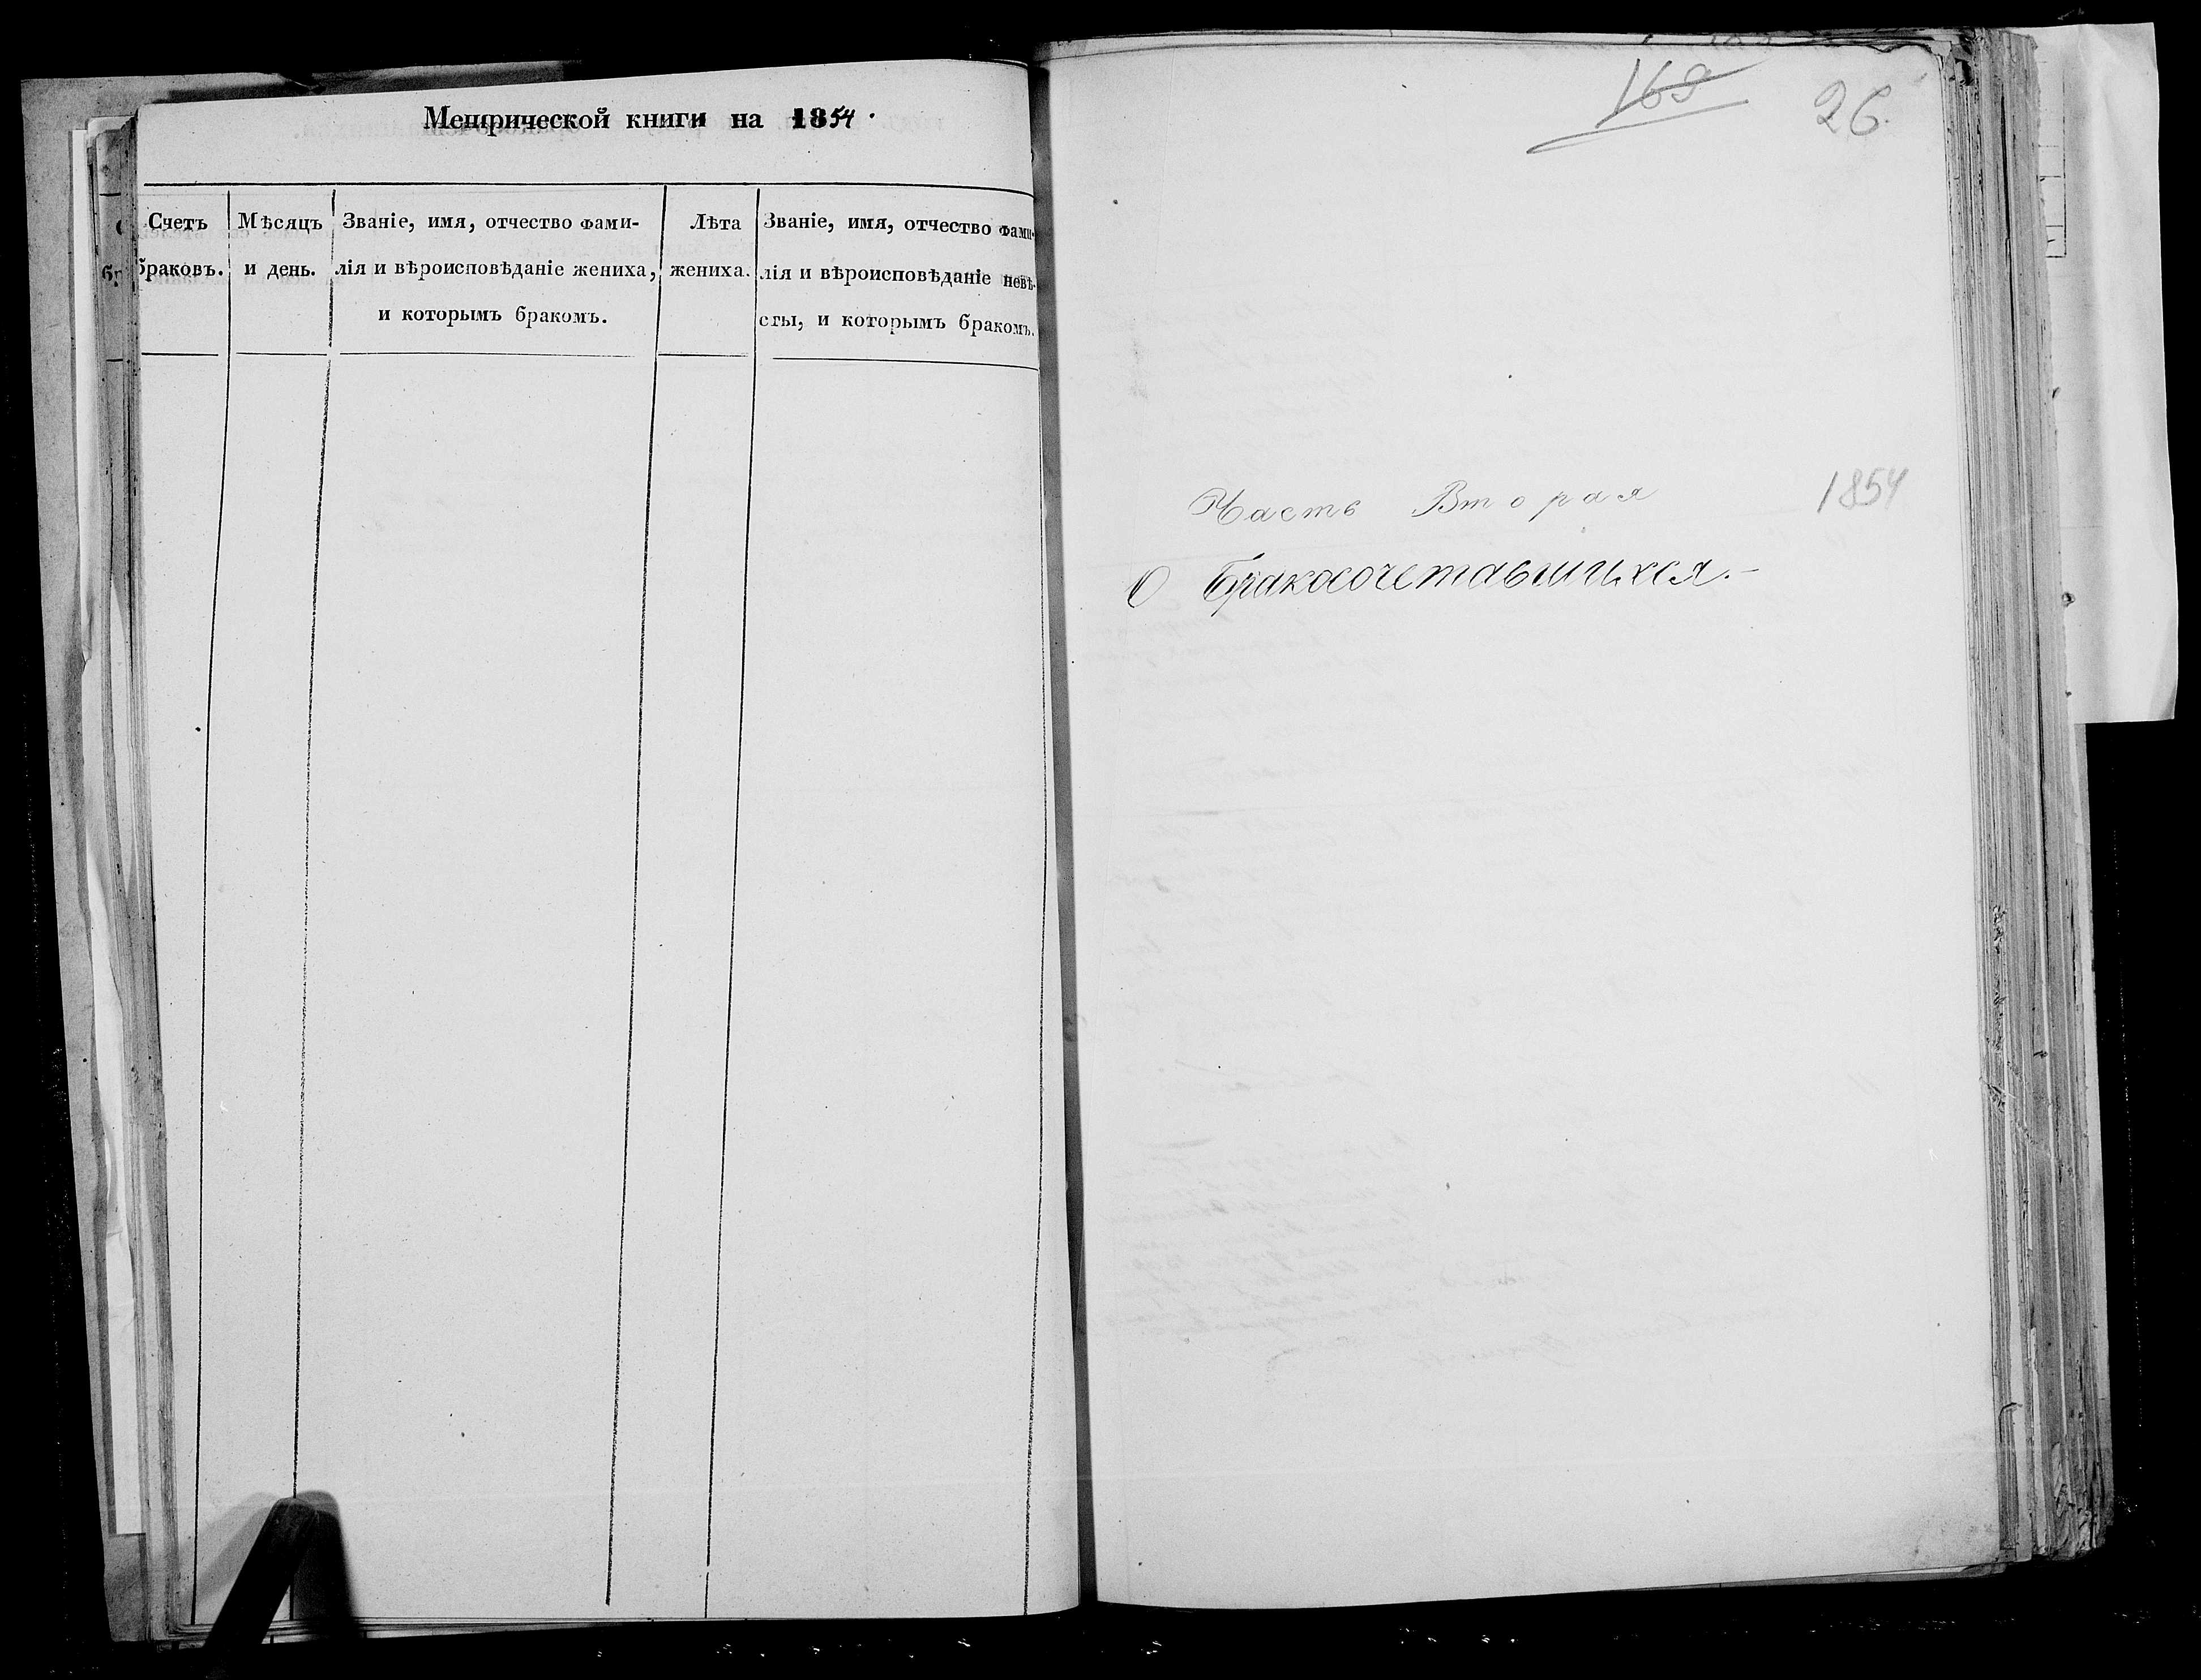 Метрической книги на 1854.
Счетъ
браковъ.
Мѣсяцъ
и день.
Званіе, имя, отчество фами-
лія и вѣроисповѣданіе жениха,
и которымъ бракомъ.
Лѣта
жениха.
Званіе, имя, отчество фами-
лія и вѣроисповѣданіе невѣ-
сты, и которымъ бракомъ.
26.
Часть Вторая
1854
О бракосочетавшихся.–